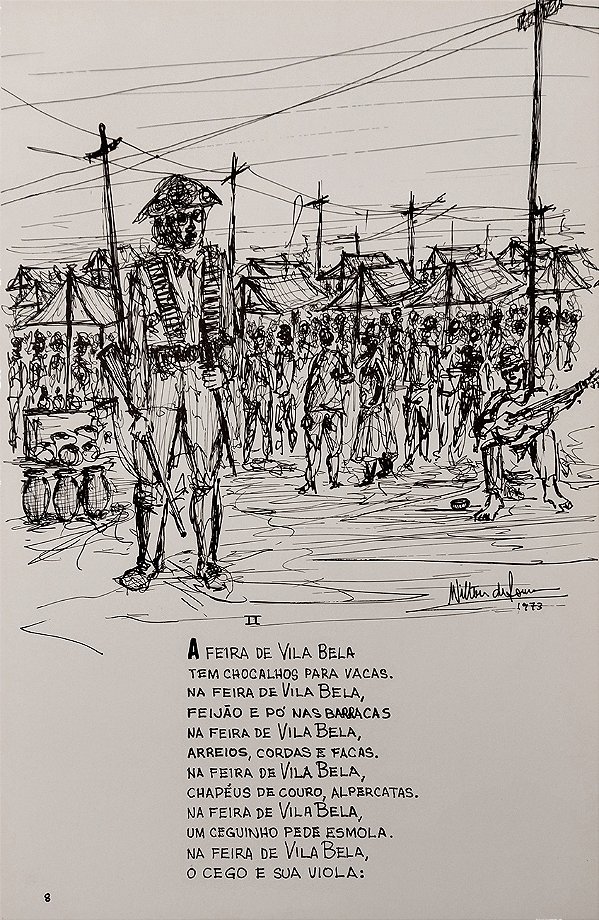 1973
II
A FEIRA DE VILA BELA
TEM CHOCALHOS PARA VACAS.
NA FEIRA DE VILA BELA,
FEIJÃO E PÓ NAS BARRACAS
NA FEIRA DE VILA BELA,
ARREIOS, CORDAS E FACAS.
NA FEIRA DE VILA BELA,
CHAPÉUS DE COURO, ALPERCATAS.
NA FEIRA DE VILA BELA,
UM CEGUINHO PEDE ESMOLA.
NA FEIRA DE VILA BELA,
O CEGO E SUA VIOLA:
8